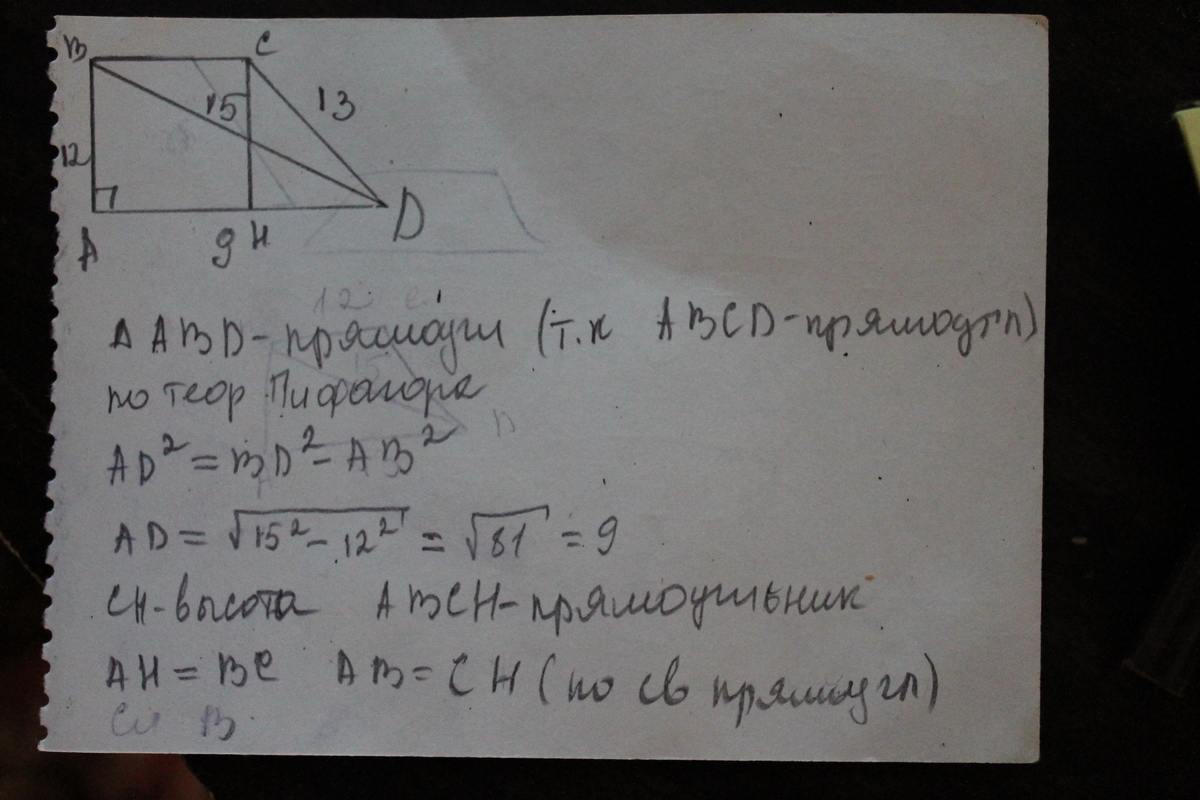 B C
15 13
12
A 9 H D
12 C
Δ ABD-прямоугл (т.к ABCD-прямоугл)
по теор Пифагора
AD² = BD² - AB²
AD = √15² - 12² = √81 = 9
CH-высота ABCH-прямоугльник
AH = BC AB = CH (по св прямоугл)